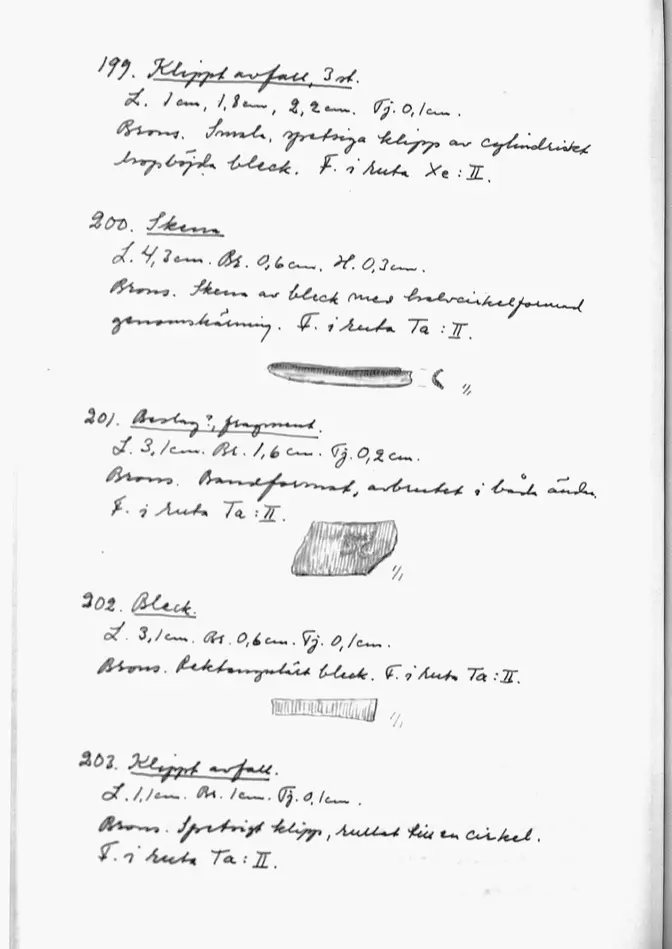 199. Klippt avfall, 3 st.
L. 1 cm, 1,8 cm, 2,2 cm. Tj. 0,1 cm.
Brons. Smala, spetsiga klipp av cylindriskt
hopböjda bleck. F. i ruta Xe : II.
200. Skena
L. 4,3 cm. Br. 0,6 cm. H. 0,3 cm.
Brons. Skena av bleck med halvcirkelformad
genomskärning. F. i ruta Ta : II.
1/1
201. Beslag?, fragment.
L. 3,1 cm. Br. 1,6 cm. Tj. 0,2 cm.
Brons. Bandformat, avbrutet i båda ändar.
F. i ruta Ta : II.
1/1
202. Bleck.
L. 3,1 cm. Br. 0,6 cm. Tj. 0,1 cm.
Brons. Rektangulärt bleck. F. i ruta Ta : II.
1/1
203. Klippt avfall.
L. 1,1 cm. Br. 1 cm. Tj. 0,1 cm.
Brons. Spetsigt klipp, rullat till en cirkel.
F. i ruta Ta : II.